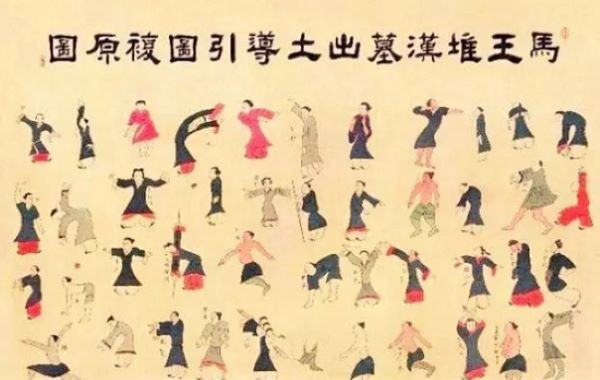 馬王堆漢墓出土導引圖複原圖